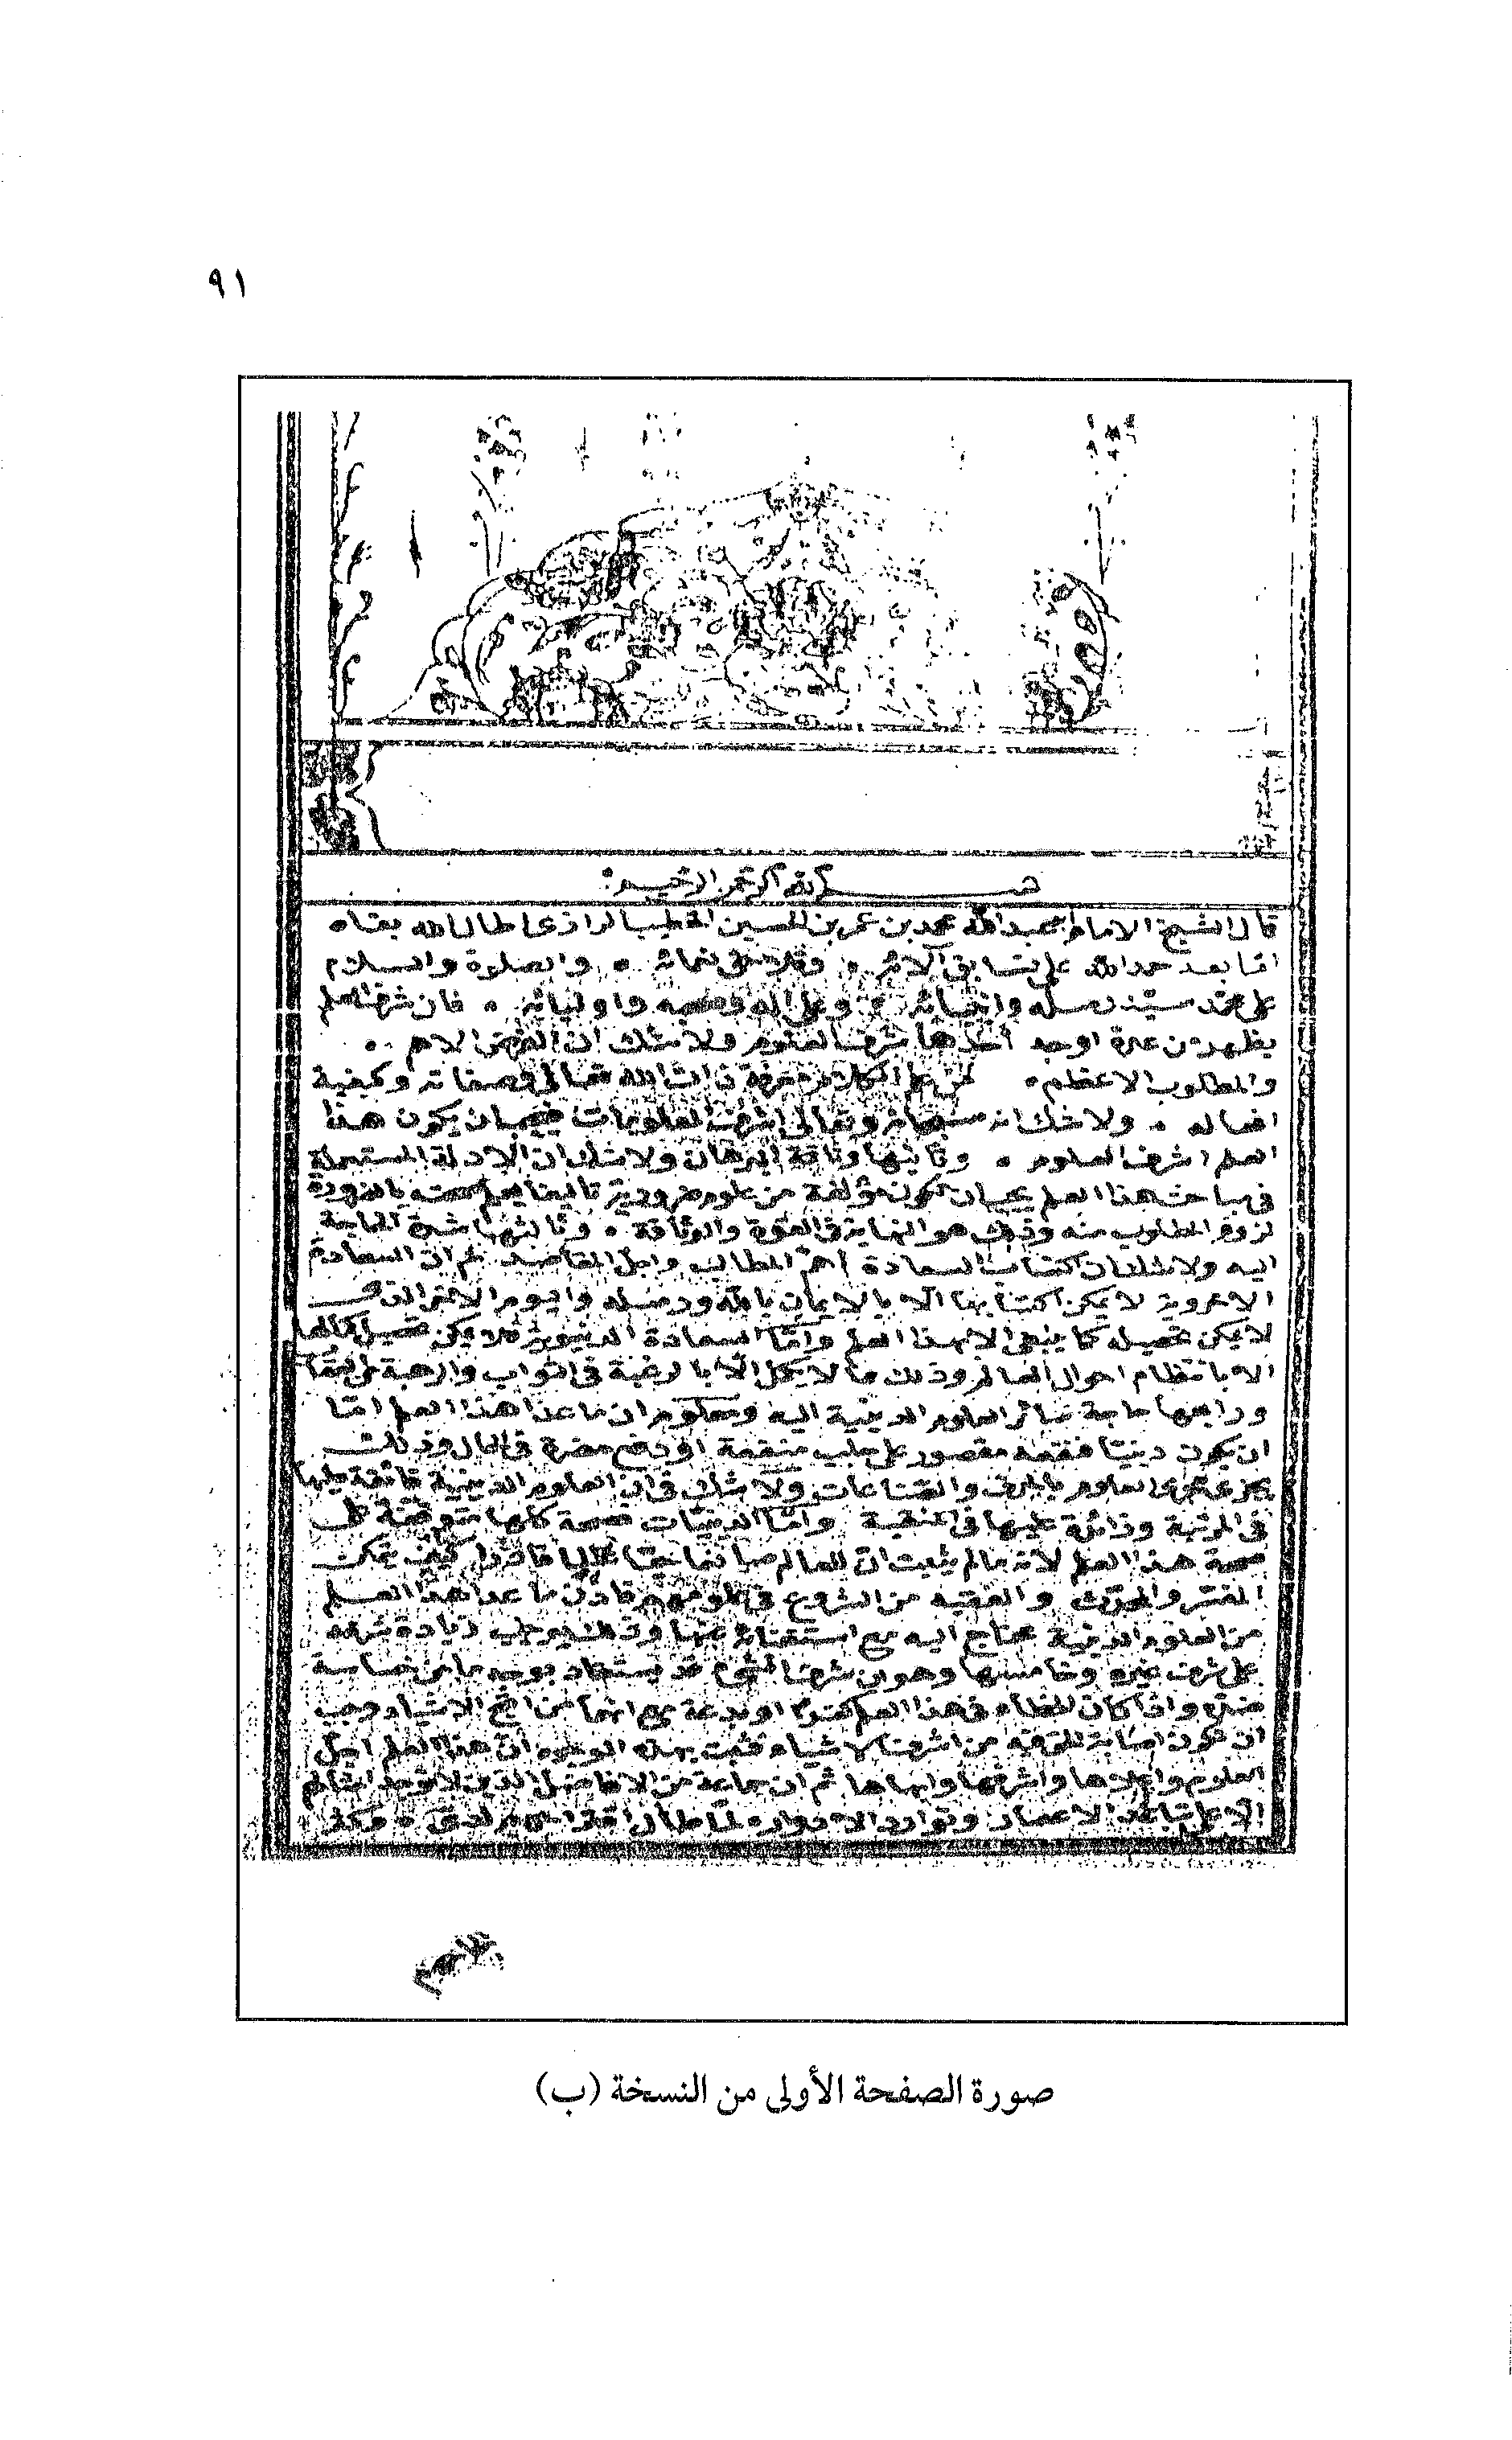 ٩١
بسم الله الرحمن الرحيم
قال الشيخ الامام ابو عبد الله محمد بن عمر بن الحسين الخطيب الرازى اطال الله بقاه
اما بعد حمد الله على تسابق آلائه وتلاحق نعمائه والصلوة والسلام
على محمد سيد رسله وانبيائه وعلى اله وصحبه واوليائه فان شرف العلم
يظهر من عدة اوجه احدها شرف المعلوم ولا شك ان الغرض الاهم
والمطلوب الاعظم من علم الكلام معرفة ذات الله تعالى وصفاته وكيفية
افعاله ولا شك انه سبحانه وتعالى اشرف المعلومات فيجب ان يكون هذا
العلم اشرف العلوم وثانيها وثاقة البرهان ولا شك ان الادلة المستعملة
فى مباحث هذا العلم يجب ان تكون مؤلفة من علوم ضرورية تاليفا يعلم صحته بالضرورة
لزوم المطلوب منه وذلك هو النهاية فى القوة والوثاقة وثالثها شدة الحاجة
اليه ولا شك ان اكتساب السعادة اهم المطالب واجل المقاصد ثم ان السعادة
الاخروية لا يمكن اكتسابها الا بالايمان بالله ورسله واليوم الاخر الذى
لا يمكن تحصيله كما ينبغى الا بهذا العلم واما السعادة الدنيوية فلا يمكن تحصيل كمالها
الا بانتظام احوال العالم وذلك مما لا يكمل الا بالرغبة فى الثواب والرهبة من العقاب
ورابعها حاجة سائر العلوم الدينية اليه ومعلوم ان ما عدا هذا العلم اما
ان يكون دينيا فنفعه مقصور على جلب منفعة او دفع مضرة فى الحال وذلك
يجرى مجرى العلوم بالحرف والصناعات ولا شك فى ان العلوم الدينية فائقة عليها
فى المرتبة وزائدة عليها فى المنقبة واما الدينيات فصحة كلها متوقفة على
صحة هذا العلم لانه ما لم يثبت ان للعالم صانعا عالما قادرا كيف يتمكن
المفسر والمحدث والفقيه من الشروع فى علومهم فاذن ما عدا هذا العلم
من العلوم الدينية محتاج اليه مع استغنائه عنها وذلك يوجب زيادة شرفه
على شرف غيره وخامسها وهو ان شرف الشىء قد يستفاد بوجه ما من خساسة
ضده واذا كان الخطاء فى هذا العلم كفرا او بدعة مع انهما من اقبح الاشياء وجب
ان تكون اصابة الحق فيه من اشرف الاشياء فثبت بهذه الوجوه ان هذا العلم اجل
العلوم واعلاها واشرفها وابهاها ثم ان جماعة من الافاضل الذين لا يوجد امثالهم
الا على تباعد الاعصار وتوارد الادوار لما طال اقتراحهم لدى وكثر
صورة الصفحة الأولى من النسخة (ب)